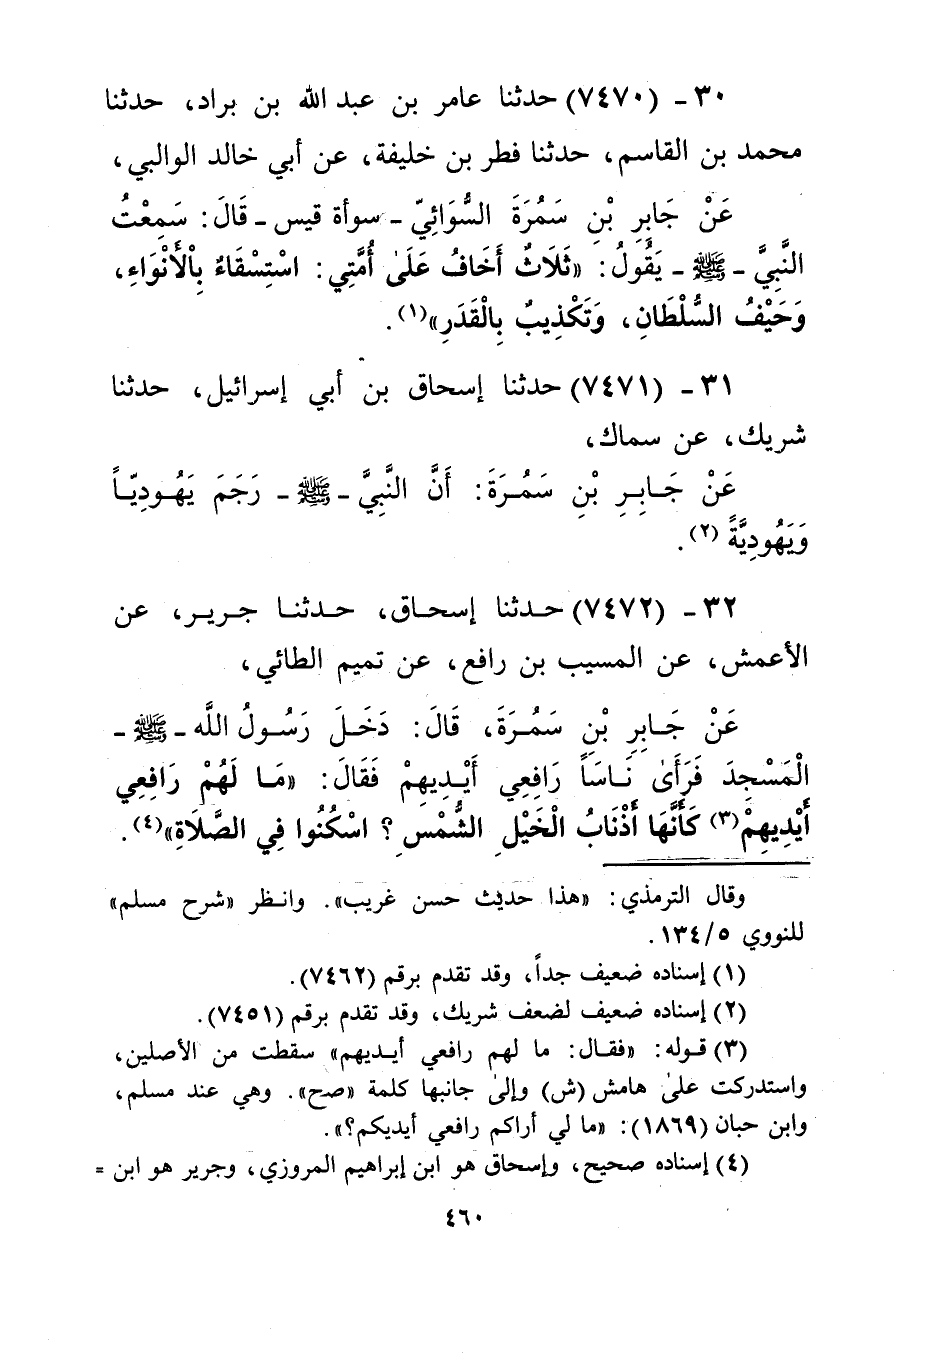 ٣٠ - (٧٤٧٠) حدثنا عامر بن عبد الله بن براد، حدثنا
محمد بن القاسم، حدثنا فطر بن خليفة، عن أبي خالد الوالبي،
عَنْ جَابِرِ بْنِ سَمُرَةَ السُّوَائِيِّ - سوأة قيس - قَالَ: سَمِعْتُ
النَّبِيَّ - ﷺ - يَقُولُ: «ثَلَاثٌ أَخَافُ عَلَىٰ أُمَّتِي: اسْتِسْقَاءٌ بِالْأَنْوَاءِ،
وَحَيْفُ السُّلْطَانِ، وَتَكْذِيبٌ بِالْقَدَرِ»(١).
٣١ - (٧٤٧١) حدثنا إسحاق بن أبي إسرائيل، حدثنا
شريك، عن سماك،
عَنْ جَابِرِ بْنِ سَمُرَةَ: أَنَّ النَّبِيَّ - ﷺ - رَجَمَ يَهُودِيّاً
وَيَهُودِيَّةً(٢).
٣٢ - (٧٤٧٢) حدثنا إسحاق، حدثنا جرير، عن
الأعمش، عن المسيب بن رافع، عن تميم الطائي،
عَنْ جَابِرِ بْنِ سَمُرَةَ، قَالَ: دَخَلَ رَسُولُ اللَّه - ﷺ -
الْمَسْجِدَ فَرَأَىٰ نَاسَاً رَافِعِي أَيْدِيهِمْ فَقَالَ: «مَا لَهُمْ رَافِعِي
أَيْدِيهِمْ(٣) كَأَنَّهَا أَذْنَابُ الْخَيْلِ الشُّمْسِ؟ اسْكُنُوا فِي الصَّلَاةِ»(٤).
وقال الترمذي: «هذا حديث حسن غريب». وانظر «شرح مسلم»
للنووي ٥/١٣٤.
(١) إسناده ضعيف جداً، وقد تقدم برقم (٧٤٦٢).
(٢) إسناده ضعيف لضعف شريك، وقد تقدم برقم (٧٤٥١).
(٣) قوله: «فقال: ما لهم رافعي أيديهم» سقطت من الأصلين،
واستدركت علىٰ هامش (ش) وإلىٰ جانبها كلمة «صح». وهي عند مسلم،
وابن حبان (١٨٦٩): «ما لي أراكم رافعي أيديكم؟».
(٤) إسناده صحيح، وإسحاق هو ابن إبراهيم المروزي، وجرير هو ابن =
٤٦٠